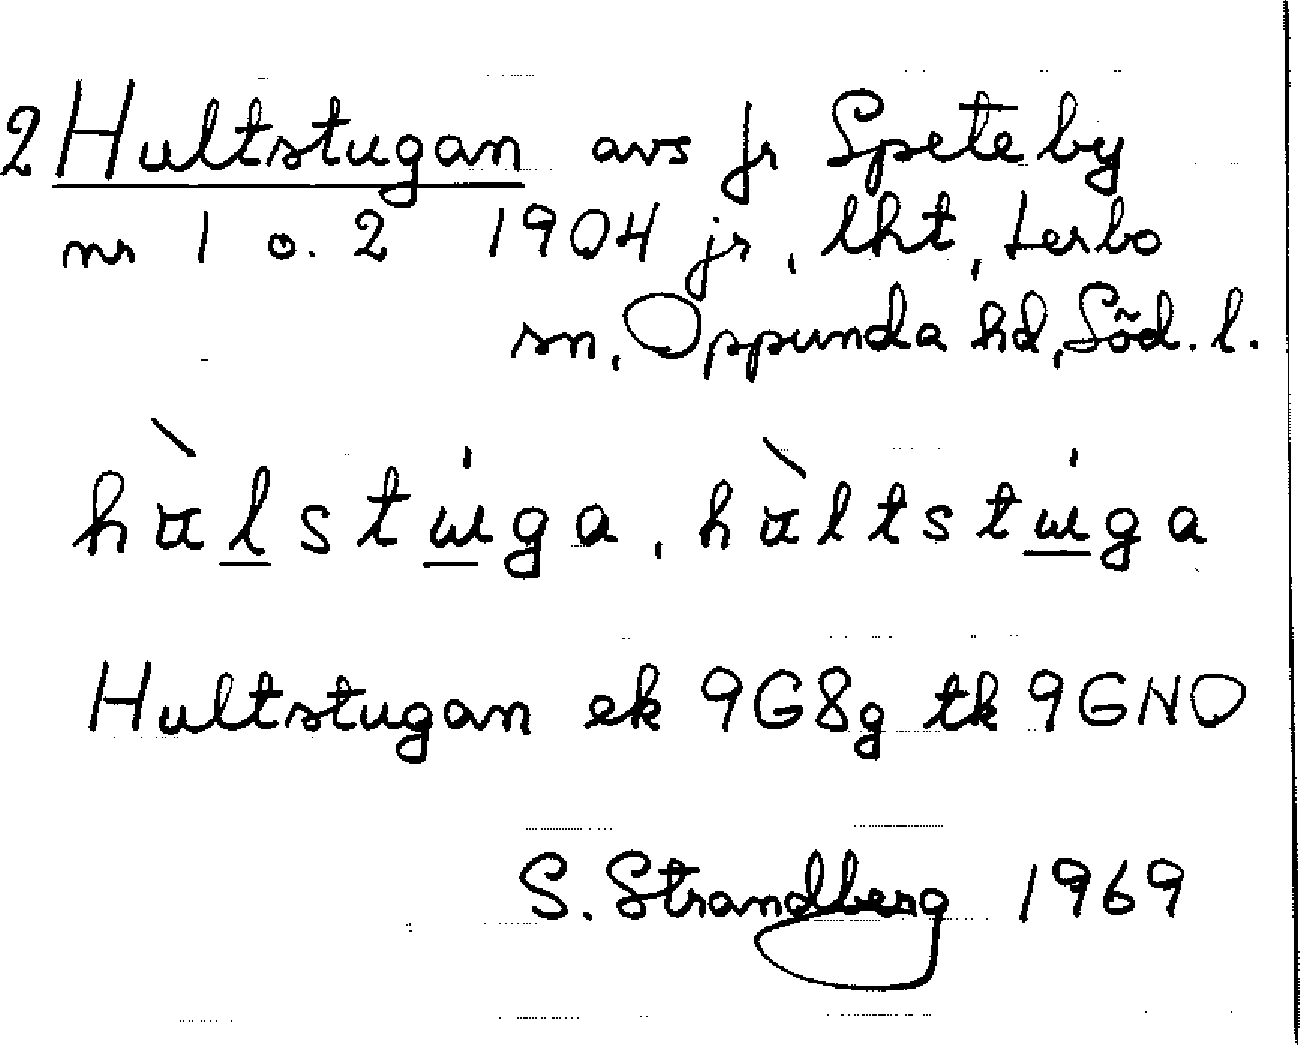 2 Hultstugan avs fr Speteby
nr 1 o. 2 1904 jr, lht, Lerbo
sn, Oppunda hd, Söd. l.
hɑ̀lstɯ́ga, hɑ̀ltstɯ́ga
Hultstugan ek 9G8g tk 9GNO
S. Strandberg 1969